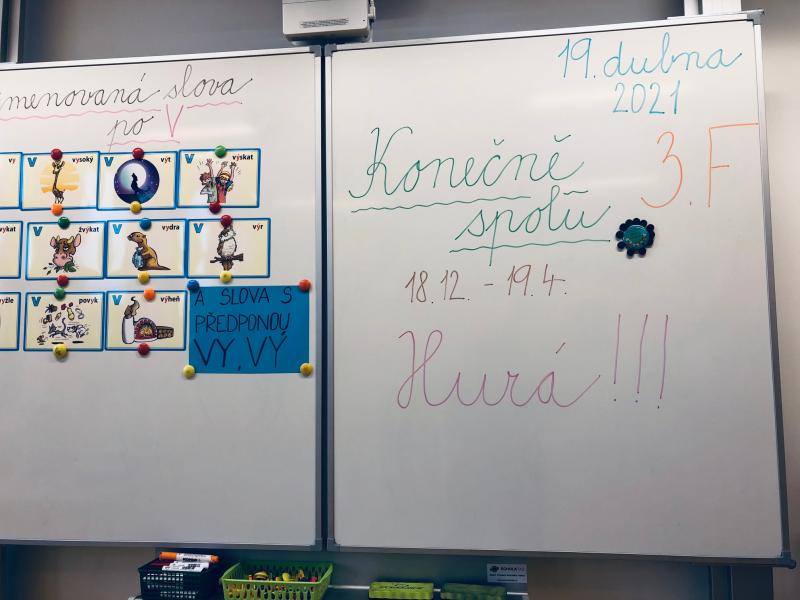 menovaná slova
po V
vy
V vysoký
V výt
V výskat
vykat
V žvýkat
V vydra
V výr
výžle
V povyk
V výheň
A SLOVA S
PŘEDPONOU
VY, VÝ
19. dubna
2021
3.F
Konečně
spolu
18.12. - 19.4.
Hurá!!!